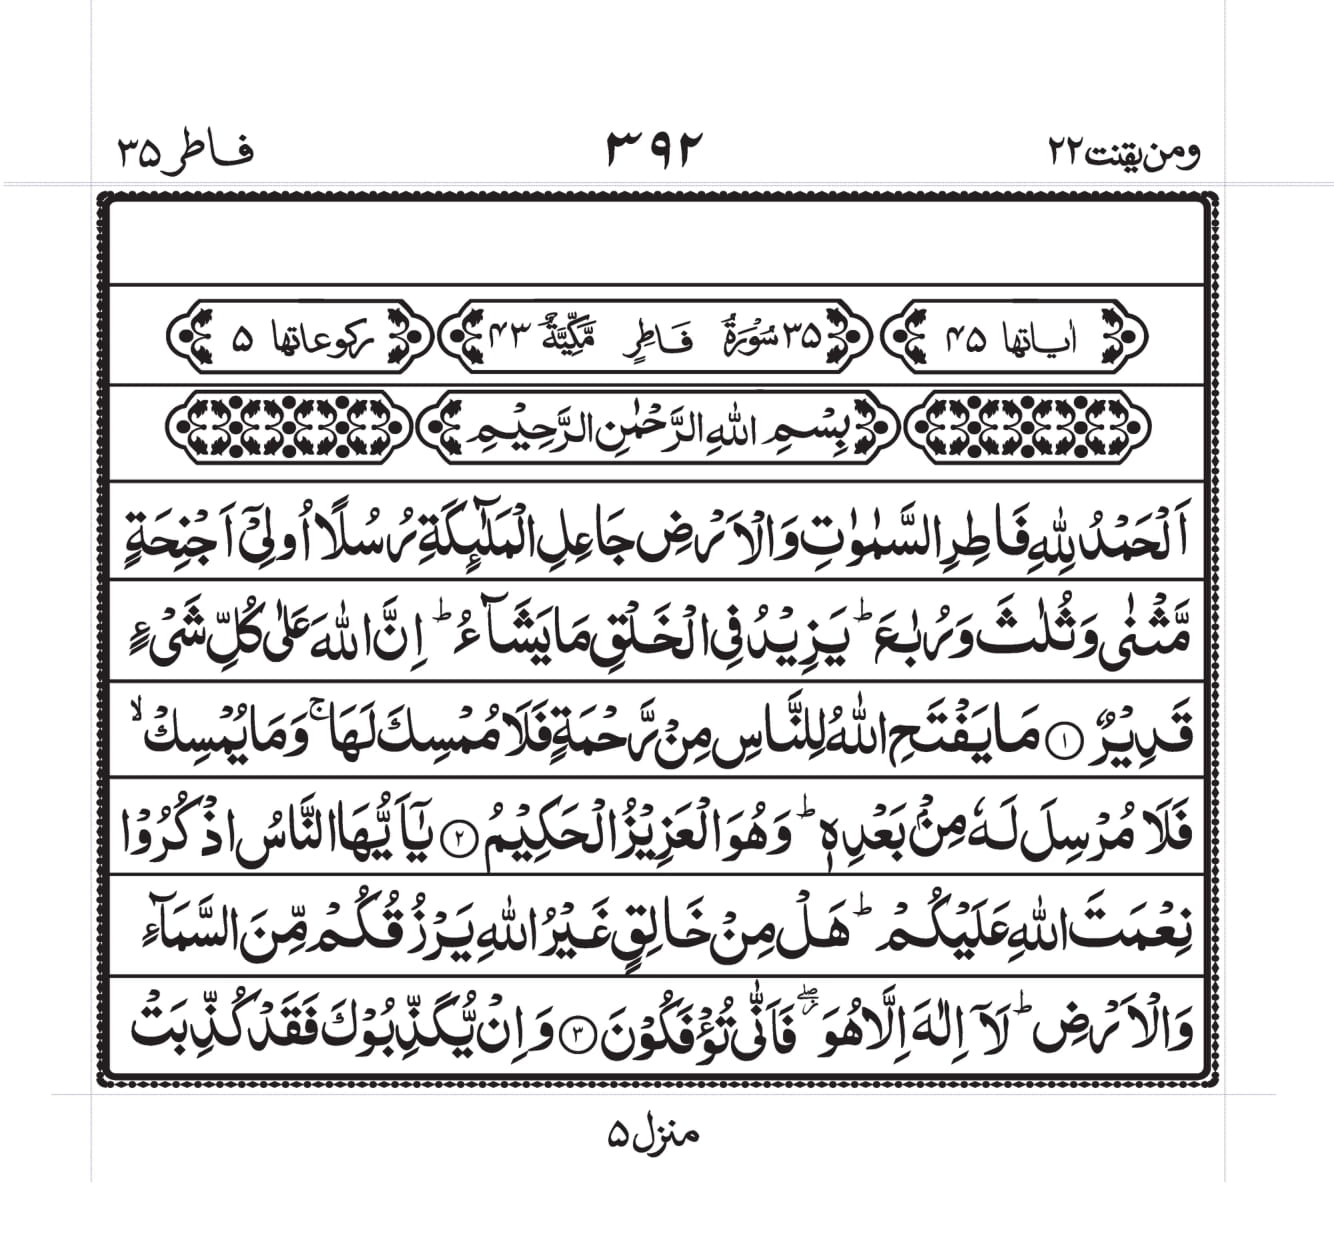 ومن یقنت ۲۲ ۳۹۲ فاطر ۳۵
اٰیاتها ۴۵ ۳۵ سُوْرَةُ فَاطِرٍ مَّكِّیَّةٌ ۴۳ ركوعاتها ۵
بِسْمِ اللّٰهِ الرَّحْمٰنِ الرَّحِیْمِ
اَلْحَمْدُ لِلّٰهِ فَاطِرِ السَّمٰوٰتِ وَالْاَرْضِ جَاعِلِ الْمَلٰٓئِكَةِ رُسُلًا اُولِیْۤ اَجْنِحَةٍ
مَّثْنٰی وَثُلٰثَ وَرُبٰعَ ؕ یَزِیْدُ فِی الْخَلْقِ مَا یَشَآءُ ؕ اِنَّ اللّٰهَ عَلٰی كُلِّ شَیْءٍ
قَدِیْرٌ ۝۱ مَا یَفْتَحِ اللّٰهُ لِلنَّاسِ مِنْ رَّحْمَةٍ فَلَا مُمْسِكَ لَهَا ۚ وَمَا یُمْسِكْ ۙ
فَلَا مُرْسِلَ لَهٗ مِنْۢ بَعْدِهٖ ؕ وَهُوَ الْعَزِیْزُ الْحَكِیْمُ ۝۲ یٰۤاَیُّهَا النَّاسُ اذْكُرُوْا
نِعْمَتَ اللّٰهِ عَلَیْكُمْ ؕ هَلْ مِنْ خَالِقٍ غَیْرُ اللّٰهِ یَرْزُقُكُمْ مِّنَ السَّمَآءِ
وَالْاَرْضِ ؕ لَاۤ اِلٰهَ اِلَّا هُوَ ۖؗ فَاَنّٰی تُؤْفَكُوْنَ ۝۳ وَاِنْ یُّكَذِّبُوْكَ فَقَدْ كُذِّبَتْ
منزل ۵